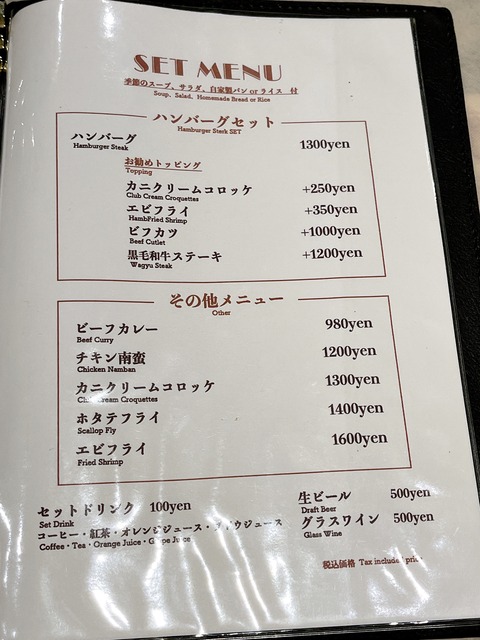 SET MENU
季節のスープ、サラダ、自家製パン or ライス 付
Soup, Salad, Homemade Bread or Rice
ハンバーグセット
Hamburger Steak SET
ハンバーグ 1300yen
Hamburger Steak
お勧めトッピング
Topping
カニクリームコロッケ +250yen
Club Cream Croquettes
エビフライ +350yen
HambFried Shrimp
ビフカツ +1000yen
Beef Cutlet
黒毛和牛ステーキ +1200yen
Wagyu Steak
その他メニュー
Other
ビーフカレー 980yen
Beef Curry
チキン南蛮 1200yen
Chicken Namban
カニクリームコロッケ 1300yen
Club Cream Croquettes
ホタテフライ 1400yen
Scallop Fly
エビフライ 1600yen
Fried Shrimp
セットドリンク 100yen
Set Drink
コーヒー・紅茶・オレンジジュース・
Coffee・Tea・Orange Juice・Grape Juice
生ビール 500yen
Draft Beer
グラスワイン 500yen
Glass Wine
税込価格 Tax included price